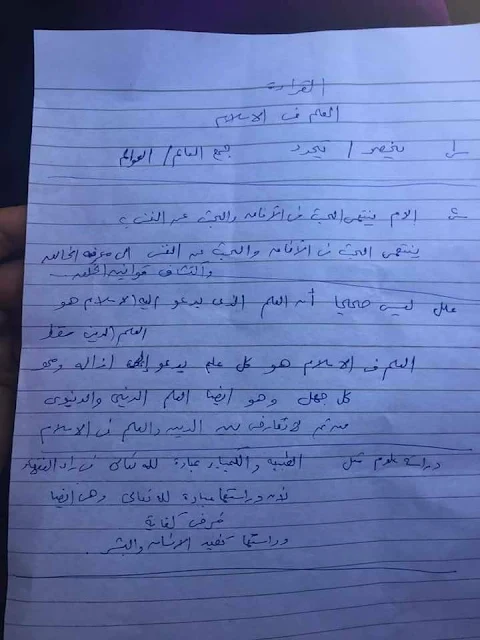 القراءة
العلم فى الاسلام
س١ ينحصر / يتحدد جمع العالم / العوالم
س الام ينتهى البحث فى الآفاق والبحث عن النفس ؟
ينتهى البحث فى الآفاق والبحث عن النفس الى معرفة الخالق
واكتشاف قوانين الخلق
علل ليس صحيحا أن العلم الذى يدعو اليه الاسلام هو
العلم الدينى فقط
العلم فى الاسلام هو كل علم يدعو إلى ازالة ومحو
كل جهل وهو ايضا العلم الدينى والدنيوى
من ثم لا تعارض بين الدين والعلم فى الاسلام
دراسة علوم مثل الطبيعة والكيمياء عبادة لله تعالى فى رأى الفقهاء
لأن دراستها عبادة لله تعالى وهى ايضا
فرض كفاية
ودراستها تفيد الانسان والبشر .